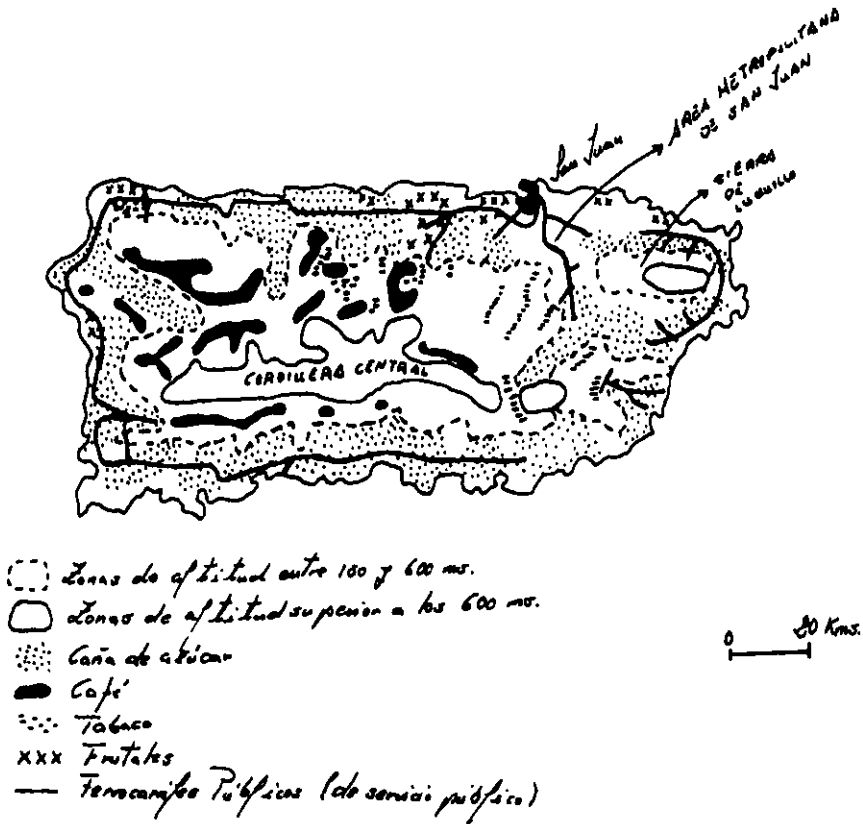 AREA METROPOLITANA
DE SAN JUAN
San Juan
SIERRA
DE
LUQUILLO
CORDILLERA CENTRAL
Zonas de altitud entre 150 y 600 ms.
Zonas de altitud superior a los 600 ms.
Caña de azúcar
Café
Tabaco
XXX Frutales
Ferrocarriles Públicos (de servicio público)
0 20 Kms.